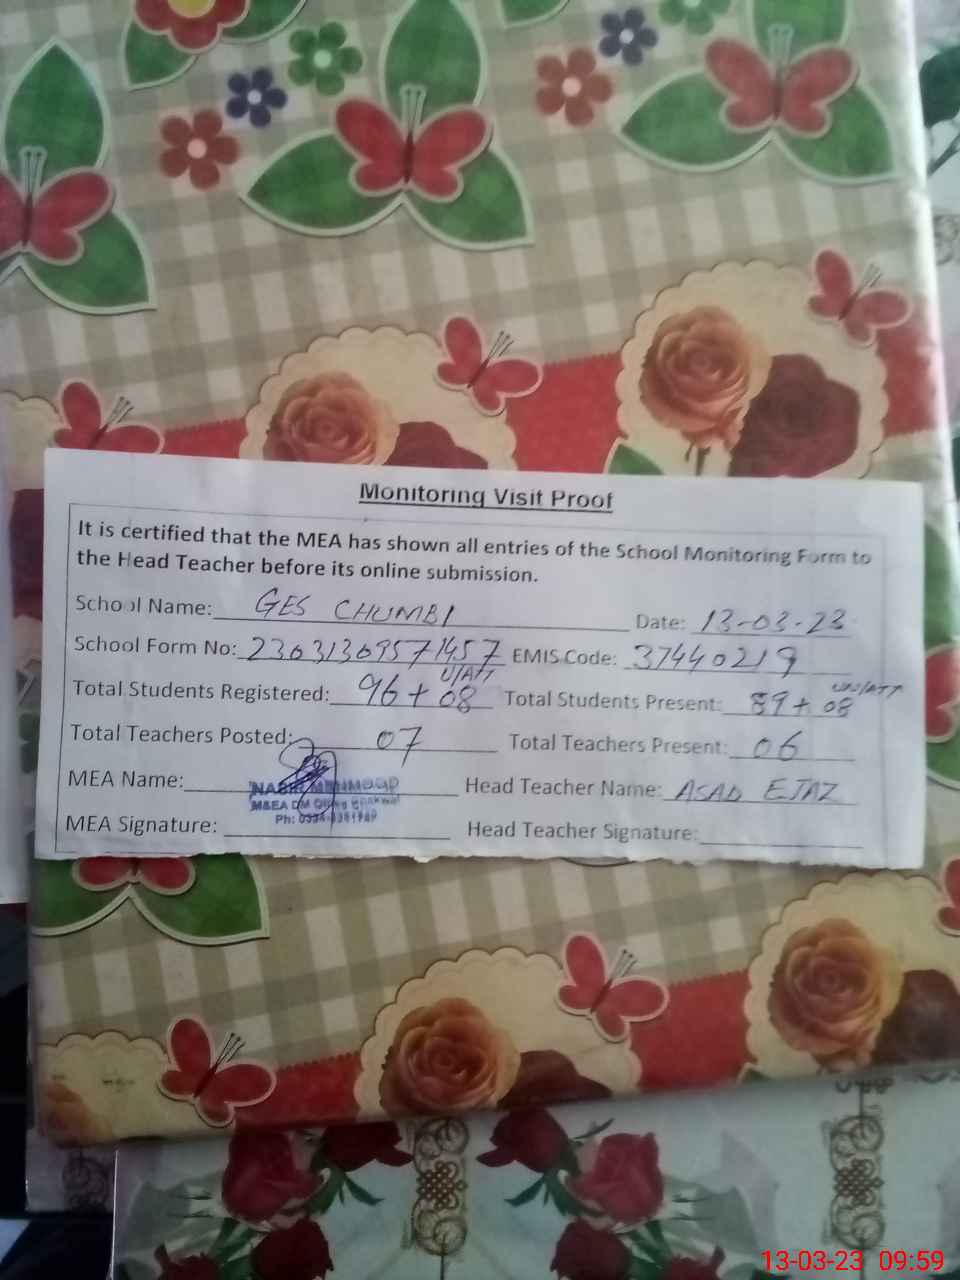 Monitoring Visit Proof
It is certified that the MEA has shown all entries of the School Monitoring Form to
the Head Teacher before its online submission.
School Name: GES CHUMBI Date: 13-03-23
School Form No: 23031309571457 EMIS Code: 37440219
Total Students Registered: 96 + 08 U/ATT Total Students Present: 89 + 08 UN/ATT
Total Teachers Posted: 07 Total Teachers Present: 06
MEA Name: Head Teacher Name: ASAD EJAZ
M&EA
Ph:
MEA Signature: Head Teacher Signature:
13-03-23 09:59